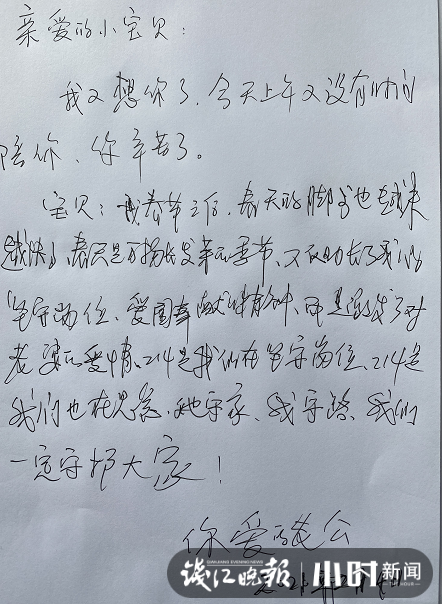 亲爱的小宝贝：
我又想你了，今天上午又没有时间
陪你，你辛苦了。
宝贝：春节之后，春天的脚步也越来
越快，春天是万物生发芽的季节，不仅助长了我们的
坚守岗位、爱国奉献的精神，
老婆的爱情，214是我们在坚守岗位，214是
我们也在思念，她守家，我守路，我们
一定守护大家！
你爱老公
钱江晚报 小时新闻
QIANJIANG EVENING NEWS